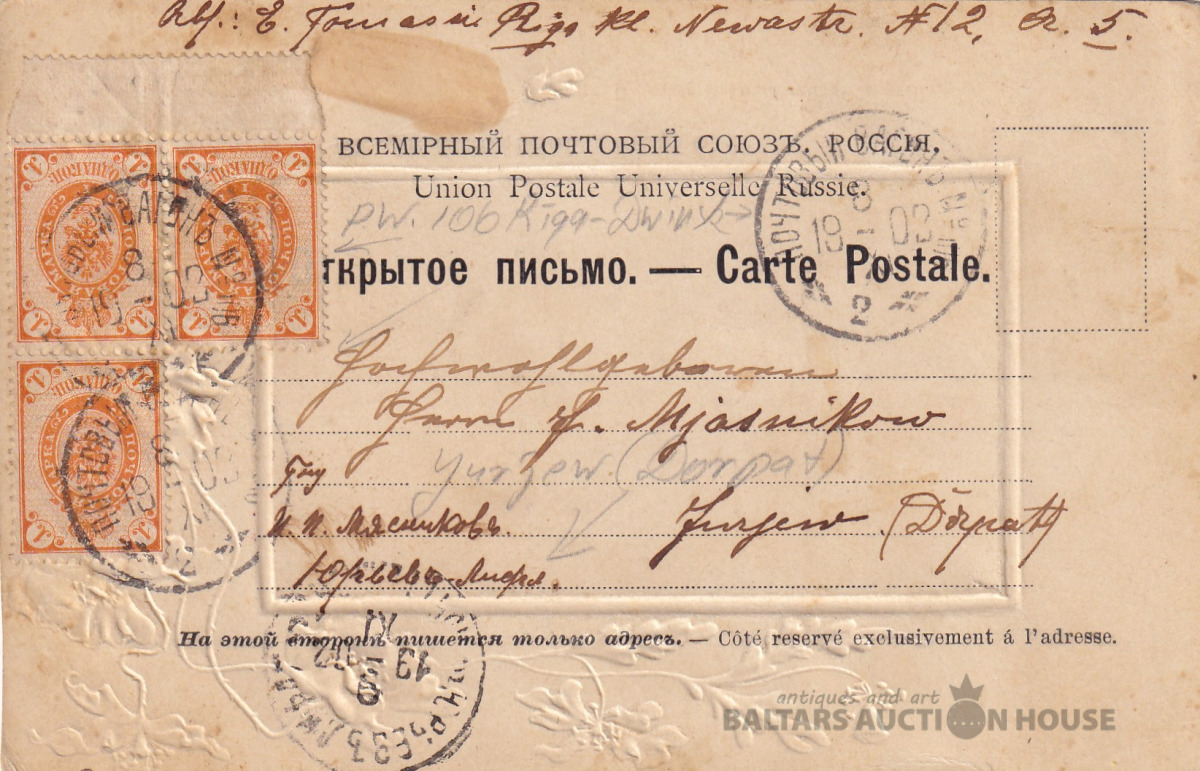 Abs.: E. Tomassi Riga Kl. Newastr. N 12, Q. 5.
ВСЕМІРНЫЙ ПОЧТОВЫЙ СОЮЗЪ. РОССІЯ.
Union Postale Universelle Russie.
PW. 106 Rīga-Dwinsk
ткрытое письмо. — Carte Postale.
ПОЧТОВЫЙ ВАГОНЪ №
8
19 - 03
2
Hochwohlgeboren
Herrn J. Mjasnikow
Jurjew. (Dorpat)
И. И. Мясниковъ.
Jurjew (Dörpat)
Юрьевъ-Лифл.
На этой сторонѣ пишется только адресъ. — Côté reservé exclusivement á l'adresse.
XI
19 03
8
ЮРЬЕВЪ ЛИФЛ
antiques and art
BALTARS AUCTION HOUSE